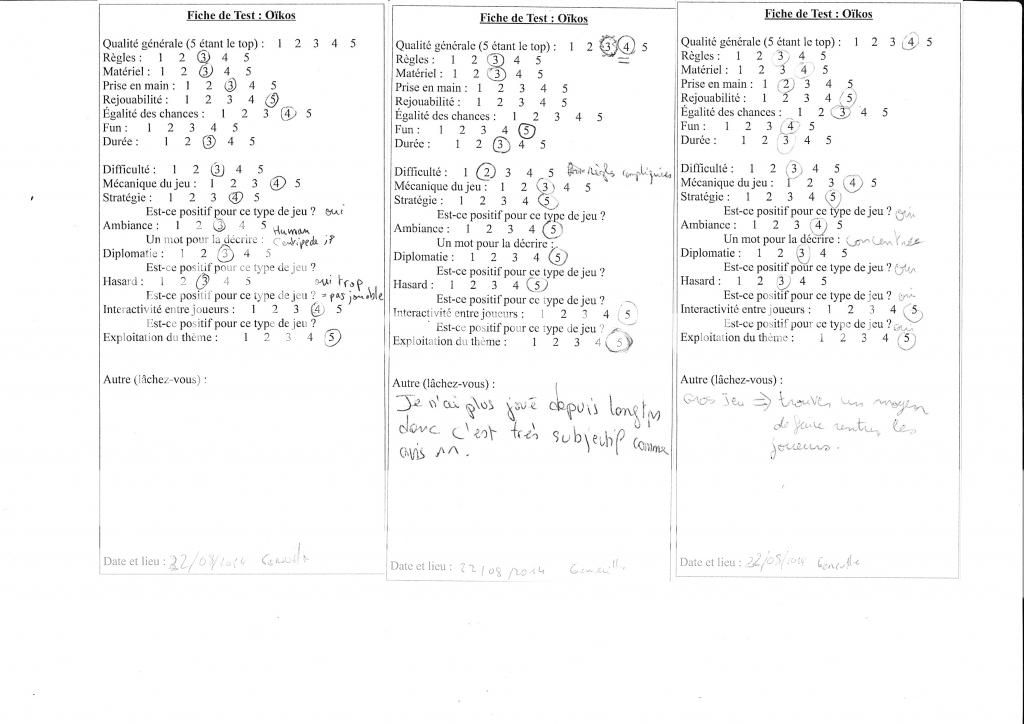 Fiche de Test : Oïkos
Qualité générale (5 étant le top) : 1 2 3 4 5
Règles : 1 2 3 4 5
Matériel : 1 2 3 4 5
Prise en main : 1 2 3 4 5
Rejouabilité : 1 2 3 4 5
Égalité des chances : 1 2 3 4 5
Fun : 1 2 3 4 5
Durée : 1 2 3 4 5
Difficulté : 1 2 3 4 5
Mécanique du jeu : 1 2 3 4 5
Stratégie : 1 2 3 4 5
Est-ce positif pour ce type de jeu ? oui
Ambiance : 1 2 3 4 5 Human
Un mot pour la décrire : Centripede ;P
Diplomatie : 1 2 3 4 5
Est-ce positif pour ce type de jeu ?
Hasard : 1 2 3 4 5 oui trop
Est-ce positif pour ce type de jeu ? = pas jouable
Interactivité entre joueurs : 1 2 3 4 5
Est-ce positif pour ce type de jeu ?
Exploitation du thème : 1 2 3 4 5
Autre (lâchez-vous) :
Date et lieu : 22/08/2014
Fiche de Test : Oïkos
Qualité générale (5 étant le top) : 1 2 3 4 5
Règles : 1 2 3 4 5
Matériel : 1 2 3 4 5
Prise en main : 1 2 3 4 5
Rejouabilité : 1 2 3 4 5
Égalité des chances : 1 2 3 4 5
Fun : 1 2 3 4 5
Durée : 1 2 3 4 5
Difficulté : 1 2 3 4 5 règles compliquées
Mécanique du jeu : 1 2 3 4 5
Stratégie : 1 2 3 4 5
Est-ce positif pour ce type de jeu ?
Ambiance : 1 2 3 4 5
Un mot pour la décrire :
Diplomatie : 1 2 3 4 5
Est-ce positif pour ce type de jeu ?
Hasard : 1 2 3 4 5
Est-ce positif pour ce type de jeu ?
Interactivité entre joueurs : 1 2 3 4 5
Est-ce positif pour ce type de jeu ?
Exploitation du thème : 1 2 3 4 5
Autre (lâchez-vous) :
Je n'ai plus joué depuis longtps
donc c'est très subjectif comme
avis ^^.
Date et lieu : 22/08/2014
Fiche de Test : Oïkos
Qualité générale (5 étant le top) : 1 2 3 4 5
Règles : 1 2 3 4 5
Matériel : 1 2 3 4 5
Prise en main : 1 2 3 4 5
Rejouabilité : 1 2 3 4 5
Égalité des chances : 1 2 3 4 5
Fun : 1 2 3 4 5
Durée : 1 2 3 4 5
Difficulté : 1 2 3 4 5
Mécanique du jeu : 1 2 3 4 5
Stratégie : 1 2 3 4 5
Est-ce positif pour ce type de jeu ? oui
Ambiance : 1 2 3 4 5
Un mot pour la décrire : concentrée
Diplomatie : 1 2 3 4 5
Est-ce positif pour ce type de jeu ? oui
Hasard : 1 2 3 4 5
Est-ce positif pour ce type de jeu ? oui
Interactivité entre joueurs : 1 2 3 4 5
Est-ce positif pour ce type de jeu ? oui
Exploitation du thème : 1 2 3 4 5
Autre (lâchez-vous) :
Gros jeu => trouver un moyen
de faire rentrer les
joueurs.
Date et lieu : 22/08/2014